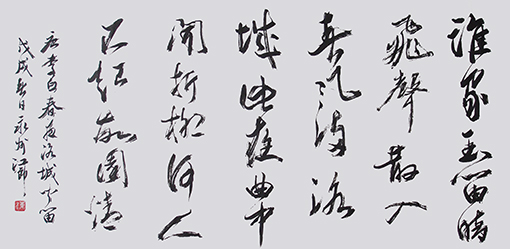 誰家玉笛暗
飛聲散入
春风满洛
城此夜曲中
闻折柳何人
不起故園情
唐李白春夜洛城闻笛
戊戌春日永州